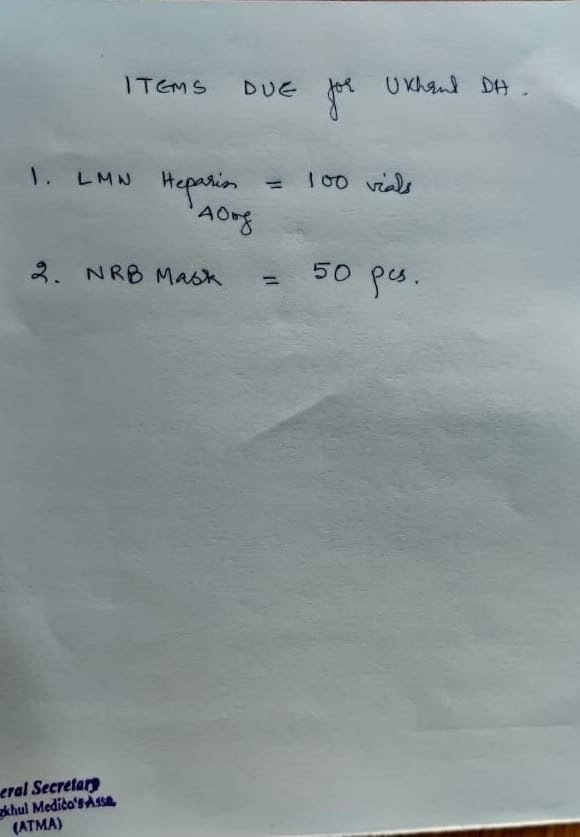 ITEMS DUE for Ukhrul DH.
1. LMW Heparin = 100 vials
40mg
2. NRB Mask = 50 pcs.
eral Secretary
gkhul Medico's Assn.
(ATMA)